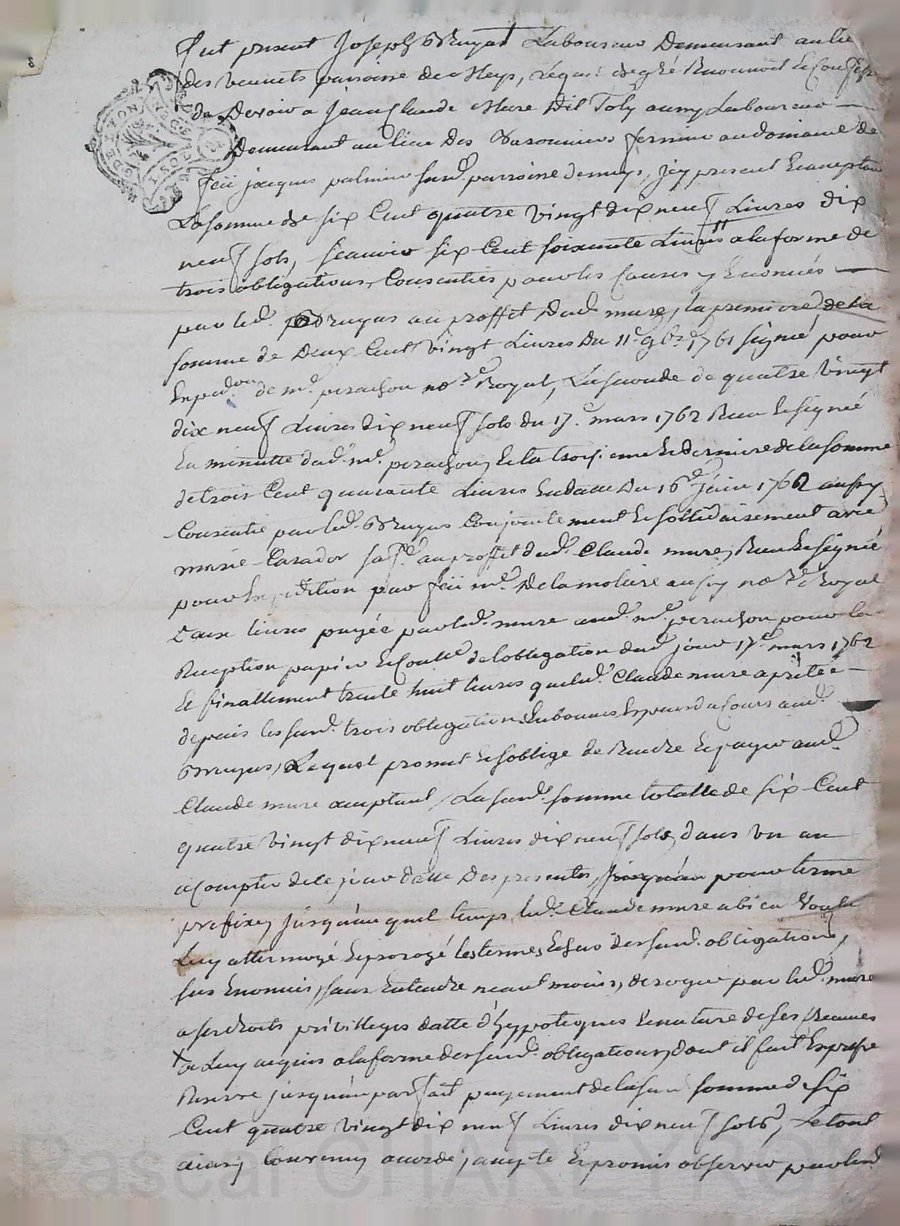 Fut present Joseph Bruyas Laboureur Demeurant au lieu
des vernets parroisse de Meys, reconnoit et Confesse
de Devoir a Jean Claude Mure Dit Toly aussy Laboureur
Demeurant au lieu Des fermier au domaine de
feü jacques palmier susd. parroisse de meys, jcy present Et acceptant
La somme de six Cent quatre vingt dix neuf Livres dix
neuf sols, scauoir six Cent soixante Livres a la forme de
trois obligations Consenties pour les Causes y Enoncées
par led. Bruyas au proffit dud. mure, la premiere de la
somme de Deux Cent vingt Livres Du 11e 9bre 1761 signée pour
Expedon de me. perachon nore Royal, La seconde de quatre vingt
dix neuf Livres dix neuf sols du 17e mars 1762 Receu Et signée
En minutte dud. me. perachon, Et la troisieme Et derniere de la somme
de trois Cent quarante Livres En datte Du 16e 1762 aussy
Consentie par led. Bruyas Conjointement Et sollidairement avec
marie Carador sa fe. au proffit dud. Claude mure, Receu Et signée
pour Expedition par feü me. Delamoliere aussy nore Royal
Deux liures payée par led. mure aud. me. perachon pour la
Reception papier Et Conlle de lobligation dud. jour 17e mars 1762
Et finallement trente huit liures que led. Claude mure a pretée
depuis les susd. trois obligations En bonnes Especes du Cours aud.
Bruyas, Lequel promet Et soblige de Rendre Et payer aud.
Claude mure acceptant, La susd. somme totalle de six Cent
quatre vingt dix neuf Livres dix neuf sols, dans un an
a Compter de ce jour datte Des presentes, pour terme
prefixe, jusqu'auquel temps led. Claude mure a bien voulu
Luy attermoyé Et prorogé les termes Echus des susd. obligations,
sus Enoncées, sans Entendre neantmoins, deroger par led. mure
a ses droits privilleges datte d'hypoteques Et nature de ses Creances
a Luy acquis a la forme des susd. obligations, dont il fait Expresse
Reserve jusqu'au parfait payement de la susd. somme de six
Cent quatre vingt dix neuf Livres dix neuf sols, Le tout
ainsy Convenu accordé, accepté Et promis observer par led.
Pascal CHAREYRON